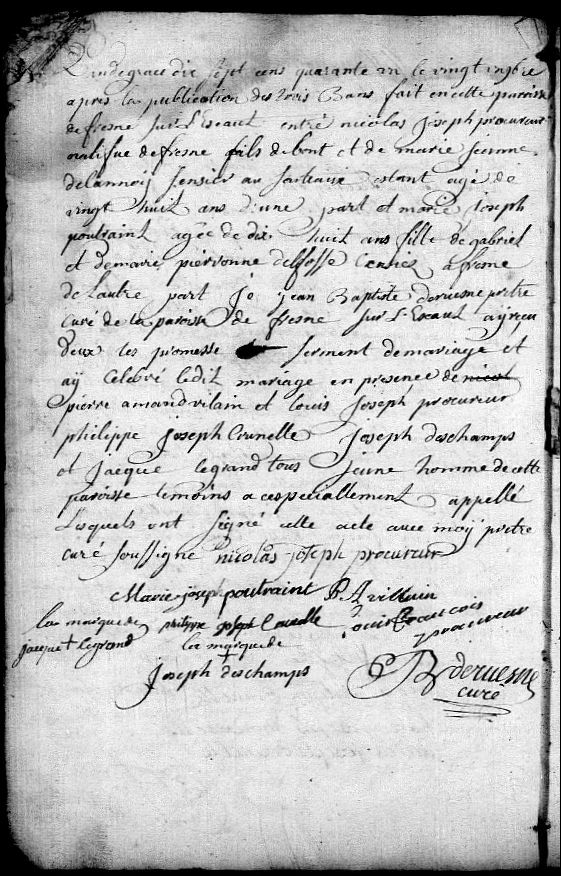 L'an de grace dix sept cens quarante un le vingt 9bre
apres la publication des trois Bans fait en cette paroisse
de fresne sur L'escaut entre nicolas joseph procureur
natif de fresne fils de et de marie jeanne
delannoij Censier au d'estant agé de
vingt huit ans d'une part et marie joseph
poutraint agée de dix huit ans fille de gabriel
et de marie pieronne delfosse Censier a fresne
de L'autre part Je jean Baptiste deruesne pretre
curé de la paroisse de fresne sur L'Escaut aij reçu
deux les promesse serment de mariage et
aij Celebré ledit mariage en presence de nicol
pierre amand vilain et louis Joseph procureur
philippe Joseph Crunelle Joseph deschamps
et Jacque legrand tous jeune homme de cette
paroisse temoins a ce speciallement appellé
Lesquels ont signé cette acte avec moij pretre
curé soussigné nicolas joseph procureur
Marie joseph poutraint P A villain
la marque de philippe joseph Crunelle Louis francois
jacque + legrand la marque de procureur
Joseph + deschamps J B deruesne
curé